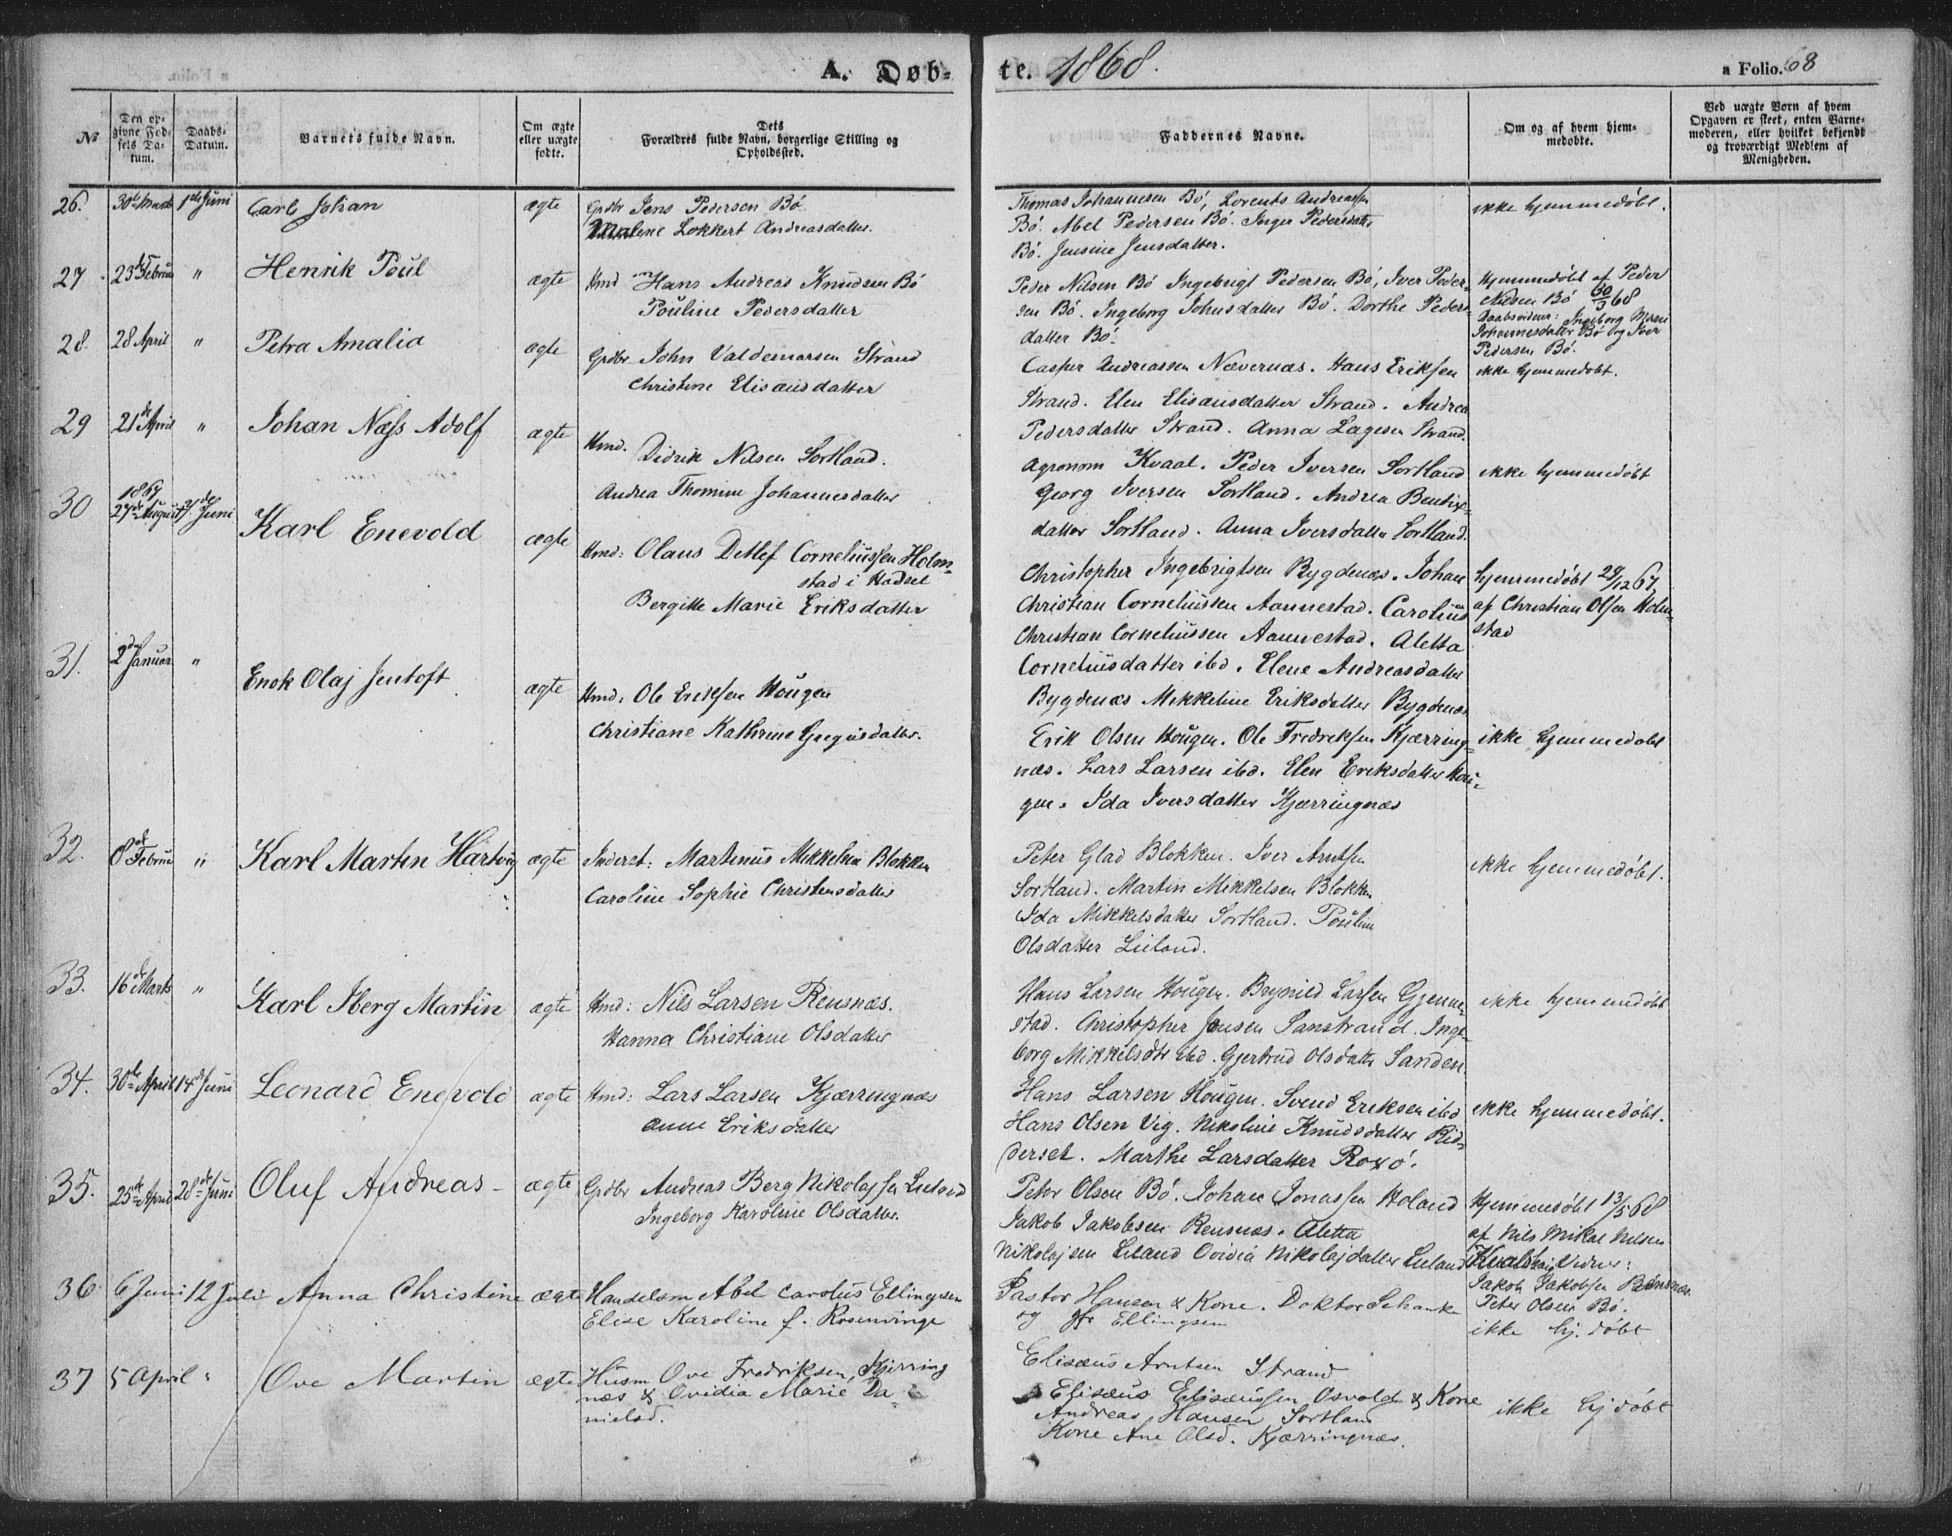 A. Døb-te. 1868.
a Folio. 68
№
Den op-givne Fød-sels Da-tum.
Daabs-Datum.
Barnets fulde Navn.
Om ægte eller uægte fødte.
Dets Forældres fulde Navn, borgerlige Stilling og Opholdssted.
Faddernes Navne.
Om og af hvem hjem-medøbte.
Ved uægte Børn af hvem Opgaven er skeet, enten Barne-moderen, eller hvilket bekjendt og troværdigt Medlem af Menigheden.
26. 30te Marts 1ste Juni Carl Johan ægte Grdbr Jens Pedersen Bø
Malene Lokkert Andreasdatter.
Thomas Johannesen Bø, Lorents Andreassen
Bø. Abel Pedersen Bø. Inger Pedersdatter
Bø. Jensine Jensdatter.
ikke hjemmedøbt.
27. 23de Februar " Henrik Poul ægte Hmd Hans Andreas Knudsen Bø
Pouline Pedersdatter
Peder Nilsen Bø Ingebrigt Pedersen Bø, Iver Peder-
sen Bø. Ingeborg Johnsdatter Bø. Dorthe Peders-
datter Bø.
Hjemmedøbt af Peder
Nilsen Bø 30/3 68
Daabsvidner: Ingeborg Marie
Johannesdatter Bø og Iver
Pedersen Bø.
28. 28 April " Petra Amalia ægte Grdbr John Valdemarsen Strand
Christine Elisæusdatter
Casper Andreassen Nævernæs. Hans Eriksen
Strand. Elen Elisæusdatter Strand. Andrea
Pedersdatter Strand. Anna Lagesen Strand.
ikke hjemmedøbt.
29 21de April " Johan Næss Adolf ægte Hmd. Didrik Nilsen Sortland.
Andrea Thomine Johannesdatter
Agronom Kvaal. Peder Iversen Sortland
Georg Iversen Sortland. Andrea Bendix-
datter Sortland. Anna Iversdatter Sortland.
ikke hjemmedøbt
30 1867 27de August 7de Juni Karl Enevold ægte Hmd: Olaus Detlef Corneliussen Holm-
stad i Hadsel
Bergitte Marie Eriksdatter
Christopher Ingebrigtsen Bygdenæs. Johan
Christian Corneliussen Aannestad. Carolius
Christian Corneliussen Aannestad. Aletta
Corneliusdatter ibd. Elene Andreasdatter
Bygdenæs Mikkeline Eriksdatter Bygdenæs
hjemmedøbt 29/12 67
af Christian Olsen Holm-
stad
31. 2den Januar " Enok Olaj Jentoft ægte Hmd: Ole Eriksen Hougen
Christiane Kathrine Gregusdatter.
Erik Olsen Hougen. Ole Fredriksen Kjærring-
næs. Lars Larsen ibd. Elen Eriksdatter Hou-
gen. Ida Iversdatter Kjærringnæs
ikke hjemmedøbt
32. 8de Februar " Karl Martin Hartvig ægte Inderst: Martinus Mikkelsen Blokken
Caroline Sophie Christensdatter
Peter Glad Blokken. Iver Arntsen
Sortland. Martin Mikkelsen Blokken
Ida Mikkelsdatter Sortland. Pouline
Olsdatter Lieland.
ikke hjemmedøbt.
33. 16de Marts " Karl Iberg Martin ægte Hmd: Nils Larsen Rensnæs.
Hanna Christiane Olsdatter
Hans Larsen Hougen. Brynild Larsen Gjenne-
stad. Christopher Jensen Sanstrand. Inge-
borg Mikkelsdtr ibd. Gjertrud Olsdatter Sanden
ikke hjemmedøbt
34. 30te April 14de Juni Leonard Enevold ægte Hmd: Lars Larsen Kjærringnæs
Anne Eriksdatter
Hans Larsen Hougen. Svend Eriksen ibd
Hans Olsen Vig. Nikoline Knudsdatter Rid-
derset. Marthe Larsdatter Roxø.
ikke hjemmedøbt.
35. 25de April 28de Juni Oluf Andreas - ægte Grdbr Andreas Berg Nikolajsen Lieland
Ingeborg Karoline Olsdatter.
Peter Olsen Bø. Johan Jonassen Holand
Jakob Jakobsen Rensnæs. Aletta
Nikolajsen Lieland Ovidia Nikolajdatter Lieland
Hjemmedøbt 13/5 68
af Nils Mikal Nilsen
Vidner:
Jakob Jakobsen Rensnæs.
Peter Olsen Bø.
36. 6 Juni 12 Juli Anna Christine ægte Handelsm Abel Carolus Ellingsen
Elise Karoline f. Rosenvinge
Pastor Hansen & Kone. Doktor Schanke
og Jfr Ellingsen
ikke hj. døbt
37 5 April " Ove Martin ægte Husm Ove Fredriksen, Kjærring
næs & Ovidia Marie Da-
nielsd.
Elisæus Arntsen Strand
Elisæus Elisæussen Osvold & Kone
Andreas Hansen Sortland
Kone Ane Olsd. Kjærringnæs.
ikke hjdøbt